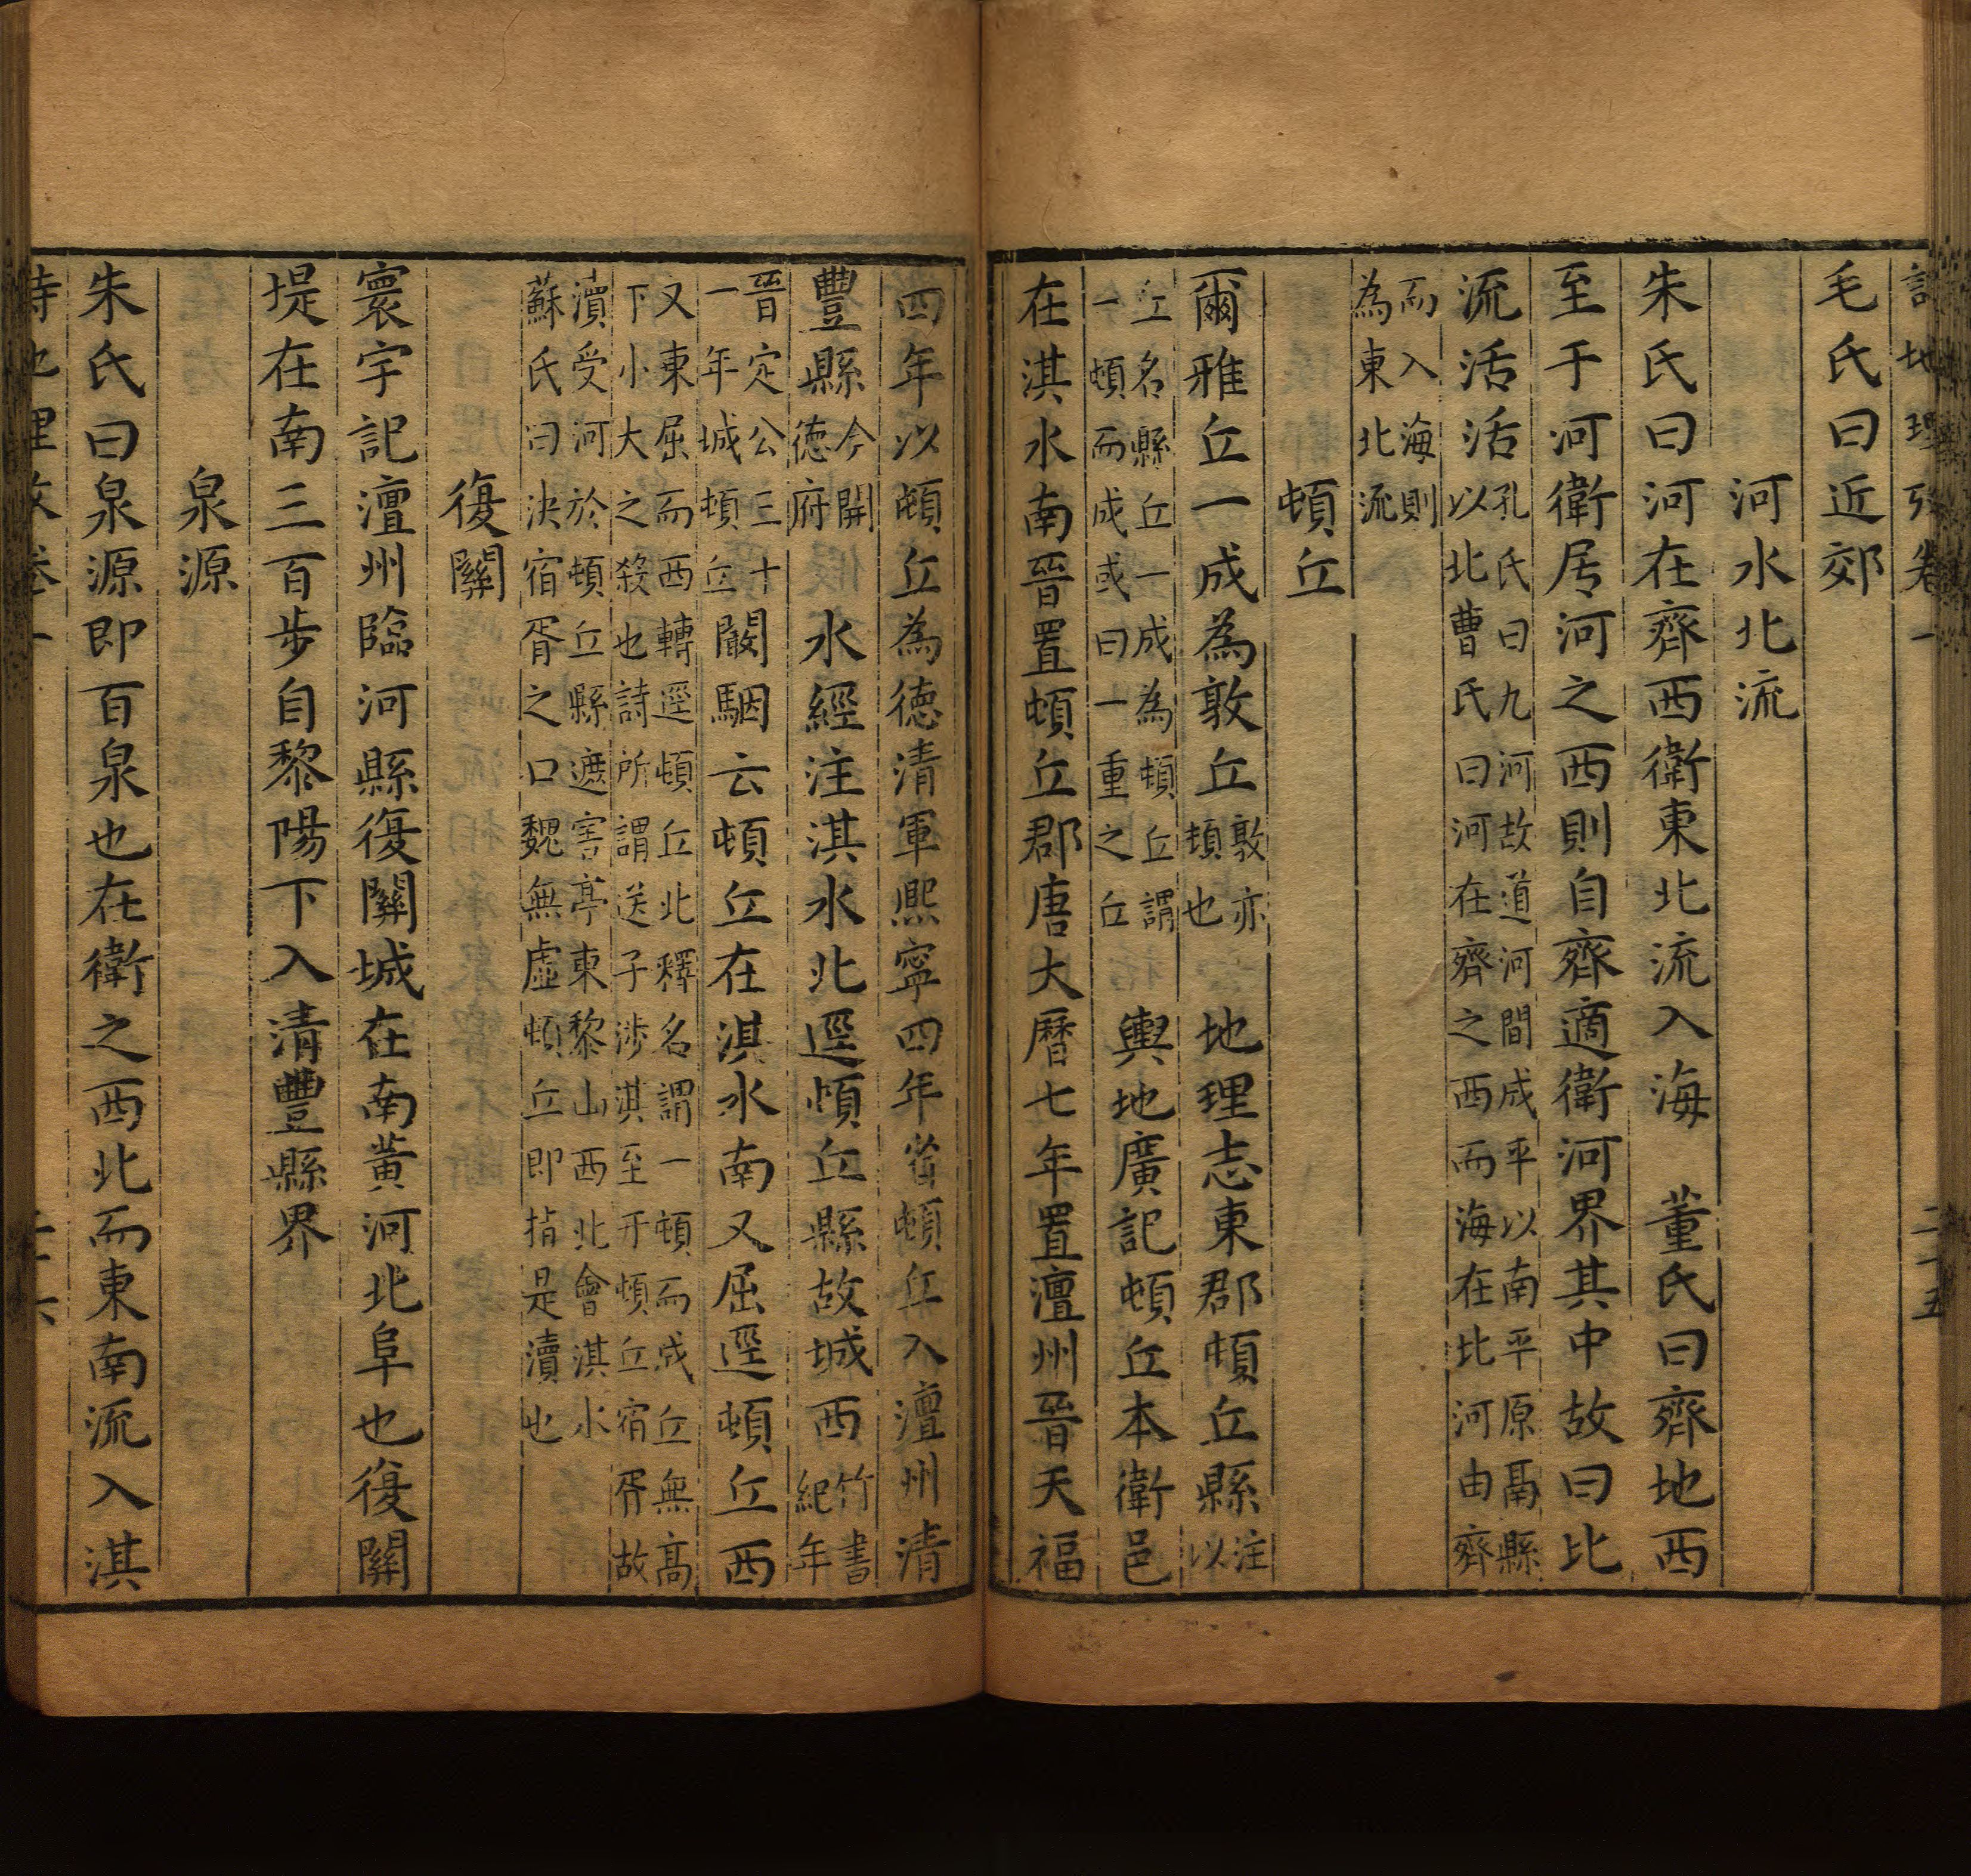 詩地理攷卷一 二十五
毛氏曰近郊
河水北流
朱氏曰河在齊西衛東北流入海 董氏曰齊地西
至于河衛居河之西則自齊適衛河界其中故曰比
流活活孔氏曰九河故道河間成平以南平原鬲縣以北曹氏曰河在齊之西而海在比河由齊
而入海則為東北流
頓丘
爾雅丘一成為敦丘敦亦頓也 地理志東郡頓丘縣注以
丘名縣丘一成為頓丘謂一頓而成或曰一重之丘 輿地廣記頓丘本衛邑
在淇水南晉置頓丘郡唐大曆七年置澶州晉天福
四年以頓丘為德清軍熙寧四年省頓丘入澶州清
豐縣今開德府 水經注淇水北逕頓丘縣故城西竹書紀年
晉定公三十一年城頓丘闞駰云頓丘在淇水南又屈逕頓丘西
又東屈而西轉逕頓丘北釋名謂一頓而成丘無高下小大之殺也詩所謂送子涉淇至于頓丘宿胥故
瀆受河於頓丘縣遮害亭東黎山西北會淇水蘇氏曰決宿胥之口魏無虛頓丘即指是瀆也
復關
寰宇記澶州臨河縣復關城在南黃河北阜也復關
堤在南三百步自黎陽下入清豐縣界
泉源
朱氏曰泉源即百泉也在衛之西北而東南流入淇
詩地理攷卷一 二十六